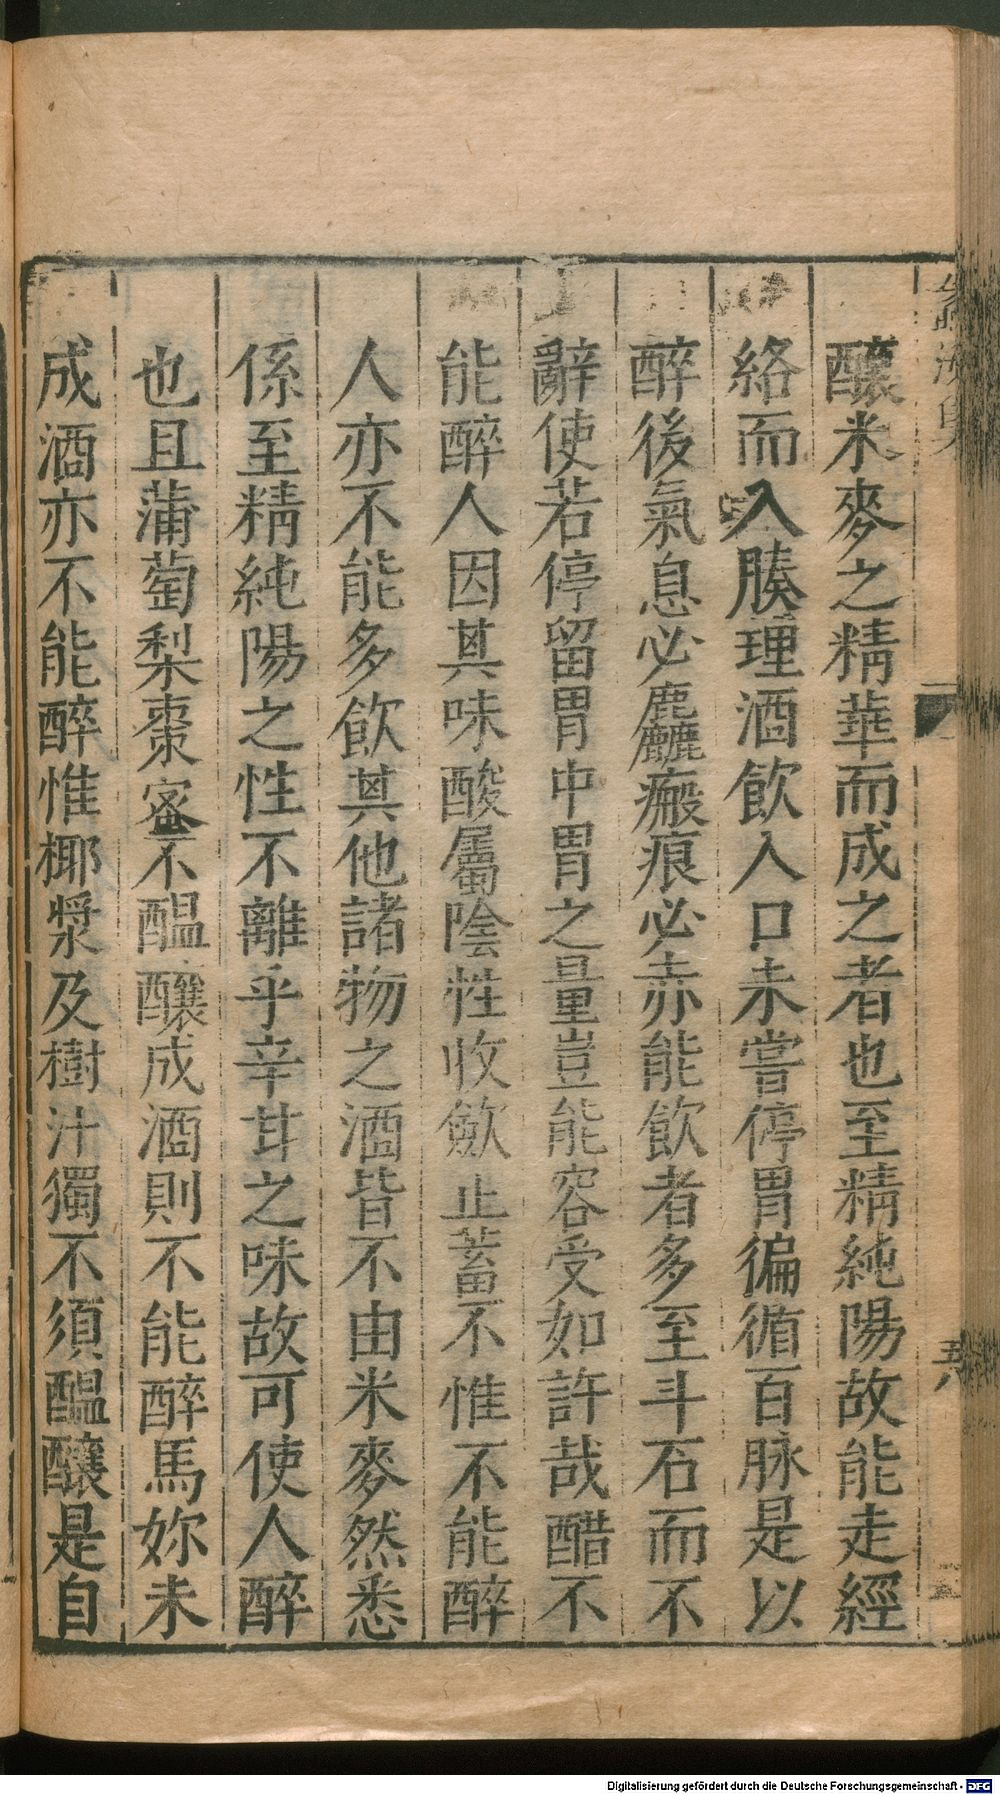 釀米麥之精華而成之者也至精純陽故能走經
絡而入腠理酒飲入口未嘗停胃徧循百脉是以
醉後氣息必麤瘢痕必赤能飲者多至斗石而不
辭使若停留胃中胃之量豈能容受如許哉醋不
能醉人因其味酸屬陰性收斂止蓄不惟不能醉
人亦不能多飲其他諸物之酒皆不由米麥然悉
係至精純陽之性不離乎辛甘之味故可使人醉
也且蒲萄梨棗蜜不醞釀成酒則不能醉馬妳未
成酒亦不能醉惟椰漿及樹汁獨不須醞釀是自
五八
Digitalisierung gefördert durch die Deutsche Forschungsgemeinschaft - DFG